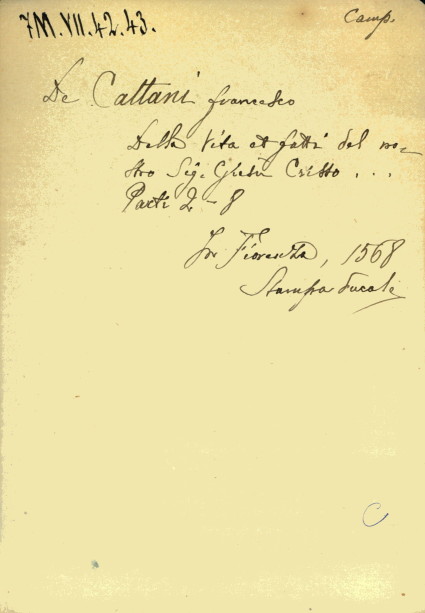 7M.VII.42.43.
Camp.
De Cattani Francesco
Della Vita et fatti del no-
stro Sig. Ghiesù Cristo ...
Parti 2 - 8
In Fiorenza, 1568
Stampa Ducale
C